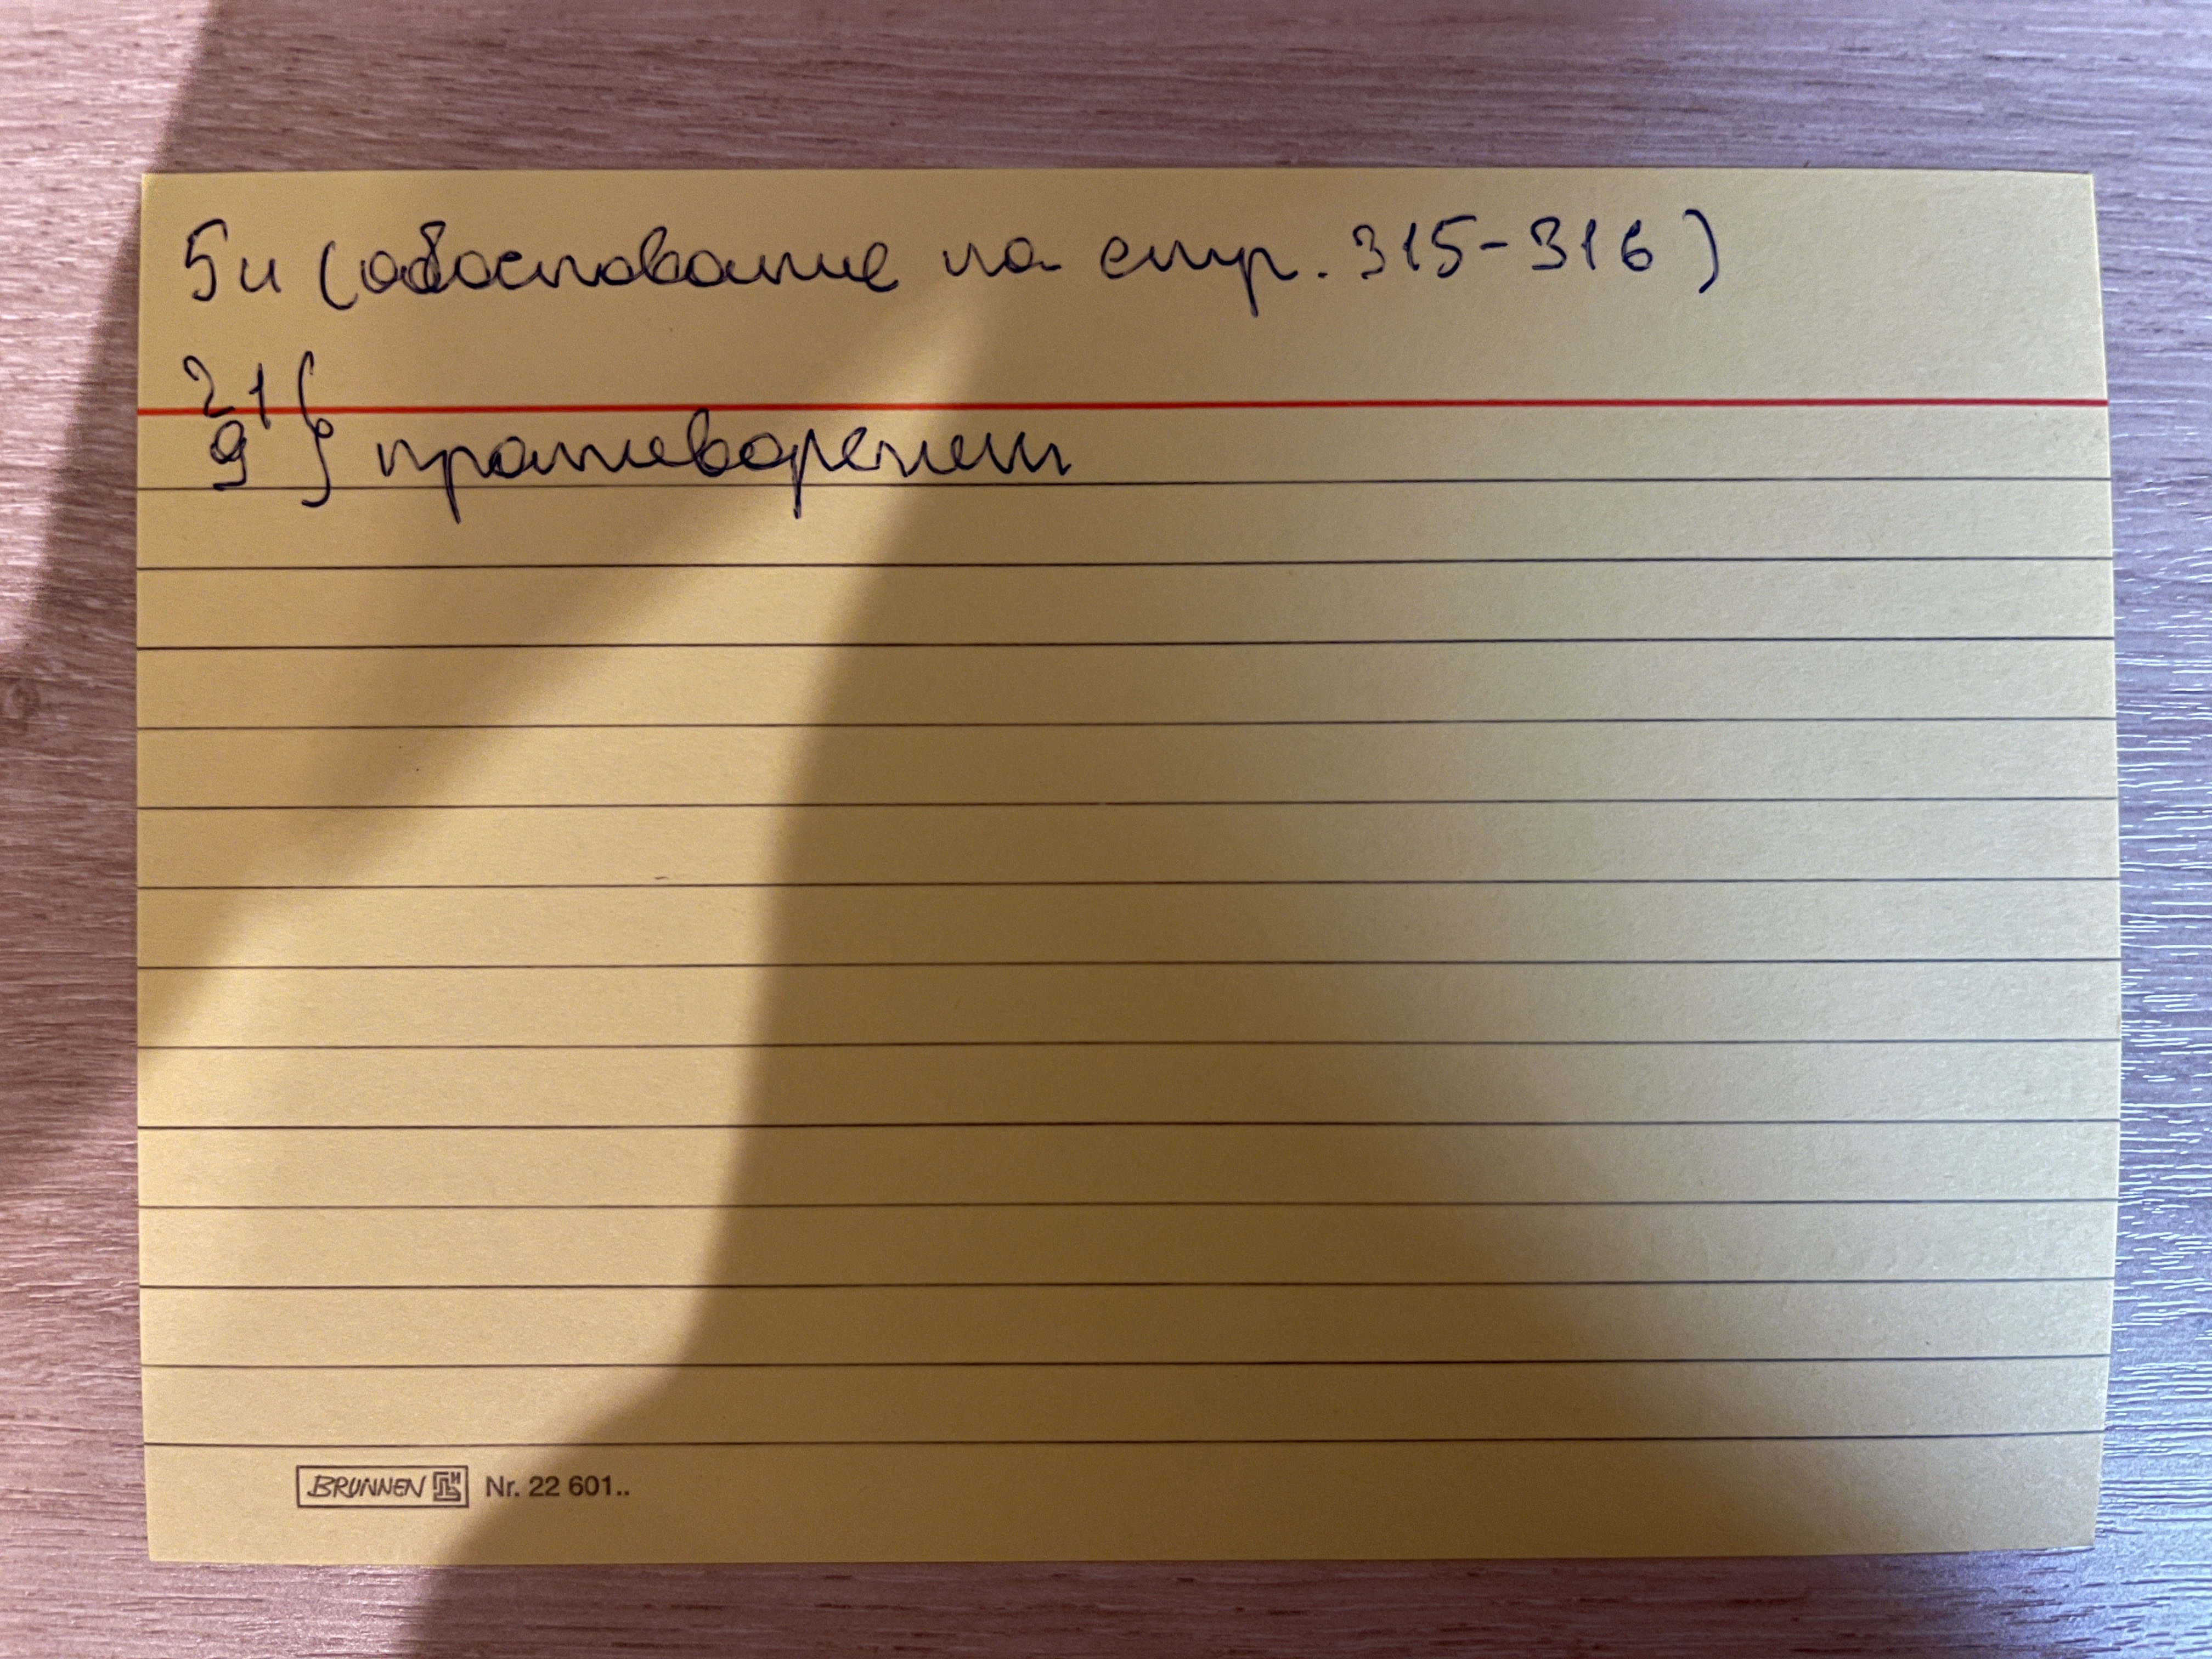 5и (обоснование на стр. 315-316)
21
9 } противоречит
BRUNNEN Nr. 22 601..